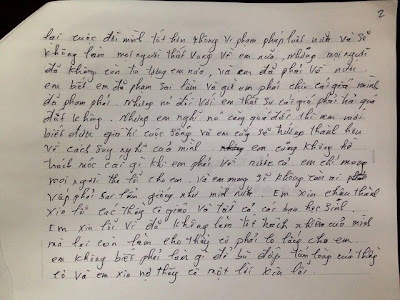 2
lại cuộc đời mình tốt hơn không vi phạm pháp luật nữa và sẽ
không làm mọi người thất vọng về em nữa, nhưng mọi người
đã không còn tin tưởng em nữa, và em đã phải về nước
em biết em đã phạm sai lầm và giờ em phải chịu cái giá mình
đã phạm phải. Nhưng nó đối với em thật sự cái giá phải trả quá
đắt không. Nhưng em nghĩ nó cũng quá đắt thì em mới
biết được giá trị cuộc sống và em cũng sẽ trưởng thành hơn
về cách suy nghĩ của mình em cũng không hề
trách móc cái gì khi em phải về nước cả em chỉ mong
mọi người tha lỗi cho em. Và em mong sẽ không còn ai
vấp phải sai lầm giống như mình nữa. Em xin chân thành
xin lỗi các thầy cô giáo và tất cả các bạn học sinh.
Em xin lỗi vì đã không làm tốt trách nhiệm của mình
mà lại còn làm cho thầy cô phải lo lắng cho em.
em không biết phải làm gì để bù đắp tấm lòng của thầy
cô và em xin nợ thầy cô một lời xin lỗi.